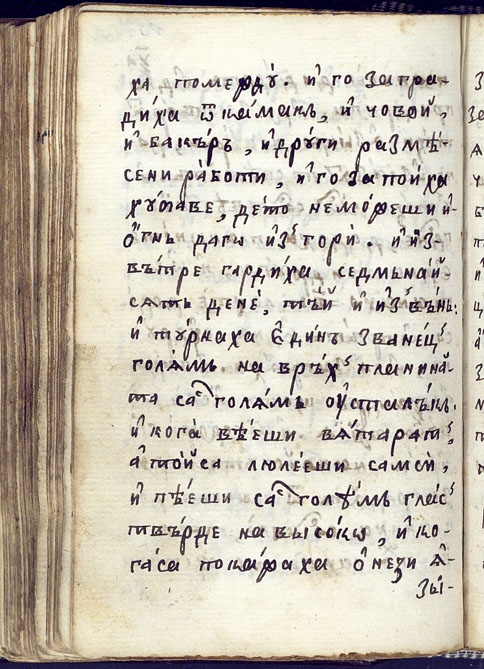 ха помеѫдꙋ̀. и҆ го загра-
ди́ха ѿ ка́макь, и҆ човой҆,
и҆ бакъ́ръ, и҆ дрꙋ́ги размѣ́-
сени ра́боти, и҆ го запои́ха
хꙋ́баве, де́то не мо́жеши и҆
о҆́гнь да го и҆згори̇̀. и҆ и҆з-
вь́тре гарди́ха седмьна́й-
сять дене́, тьй и҆ и҆звъ́нь:
и҆ тꙋ́рнаха є҆ди́нъ зване́ц
голя́мь на врьх планина́-
та са голя́мь оу҆сталь́кь.
и҆ кога̀ вѣ́еши вя́тарат,
а҆ то́й са люле́еши самси̇̀,
и҆ пѣ́еши са голѣ́мь глас
твь́рде на высо́кѡ, и҆ ко-
га са пока́раха о҆не́зи ѧ҆-
зы́-